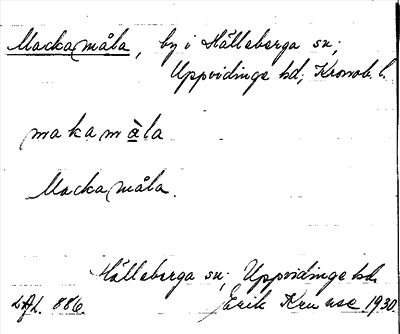 Mackamåla, by i Hälleberga sn;
Uppvidinge hd; Kronob. l.
makamåla
Mackamåla.
Hälleberga sn; Uppvidinge hd.
LAL. 886. Erik Kruuse 1930.